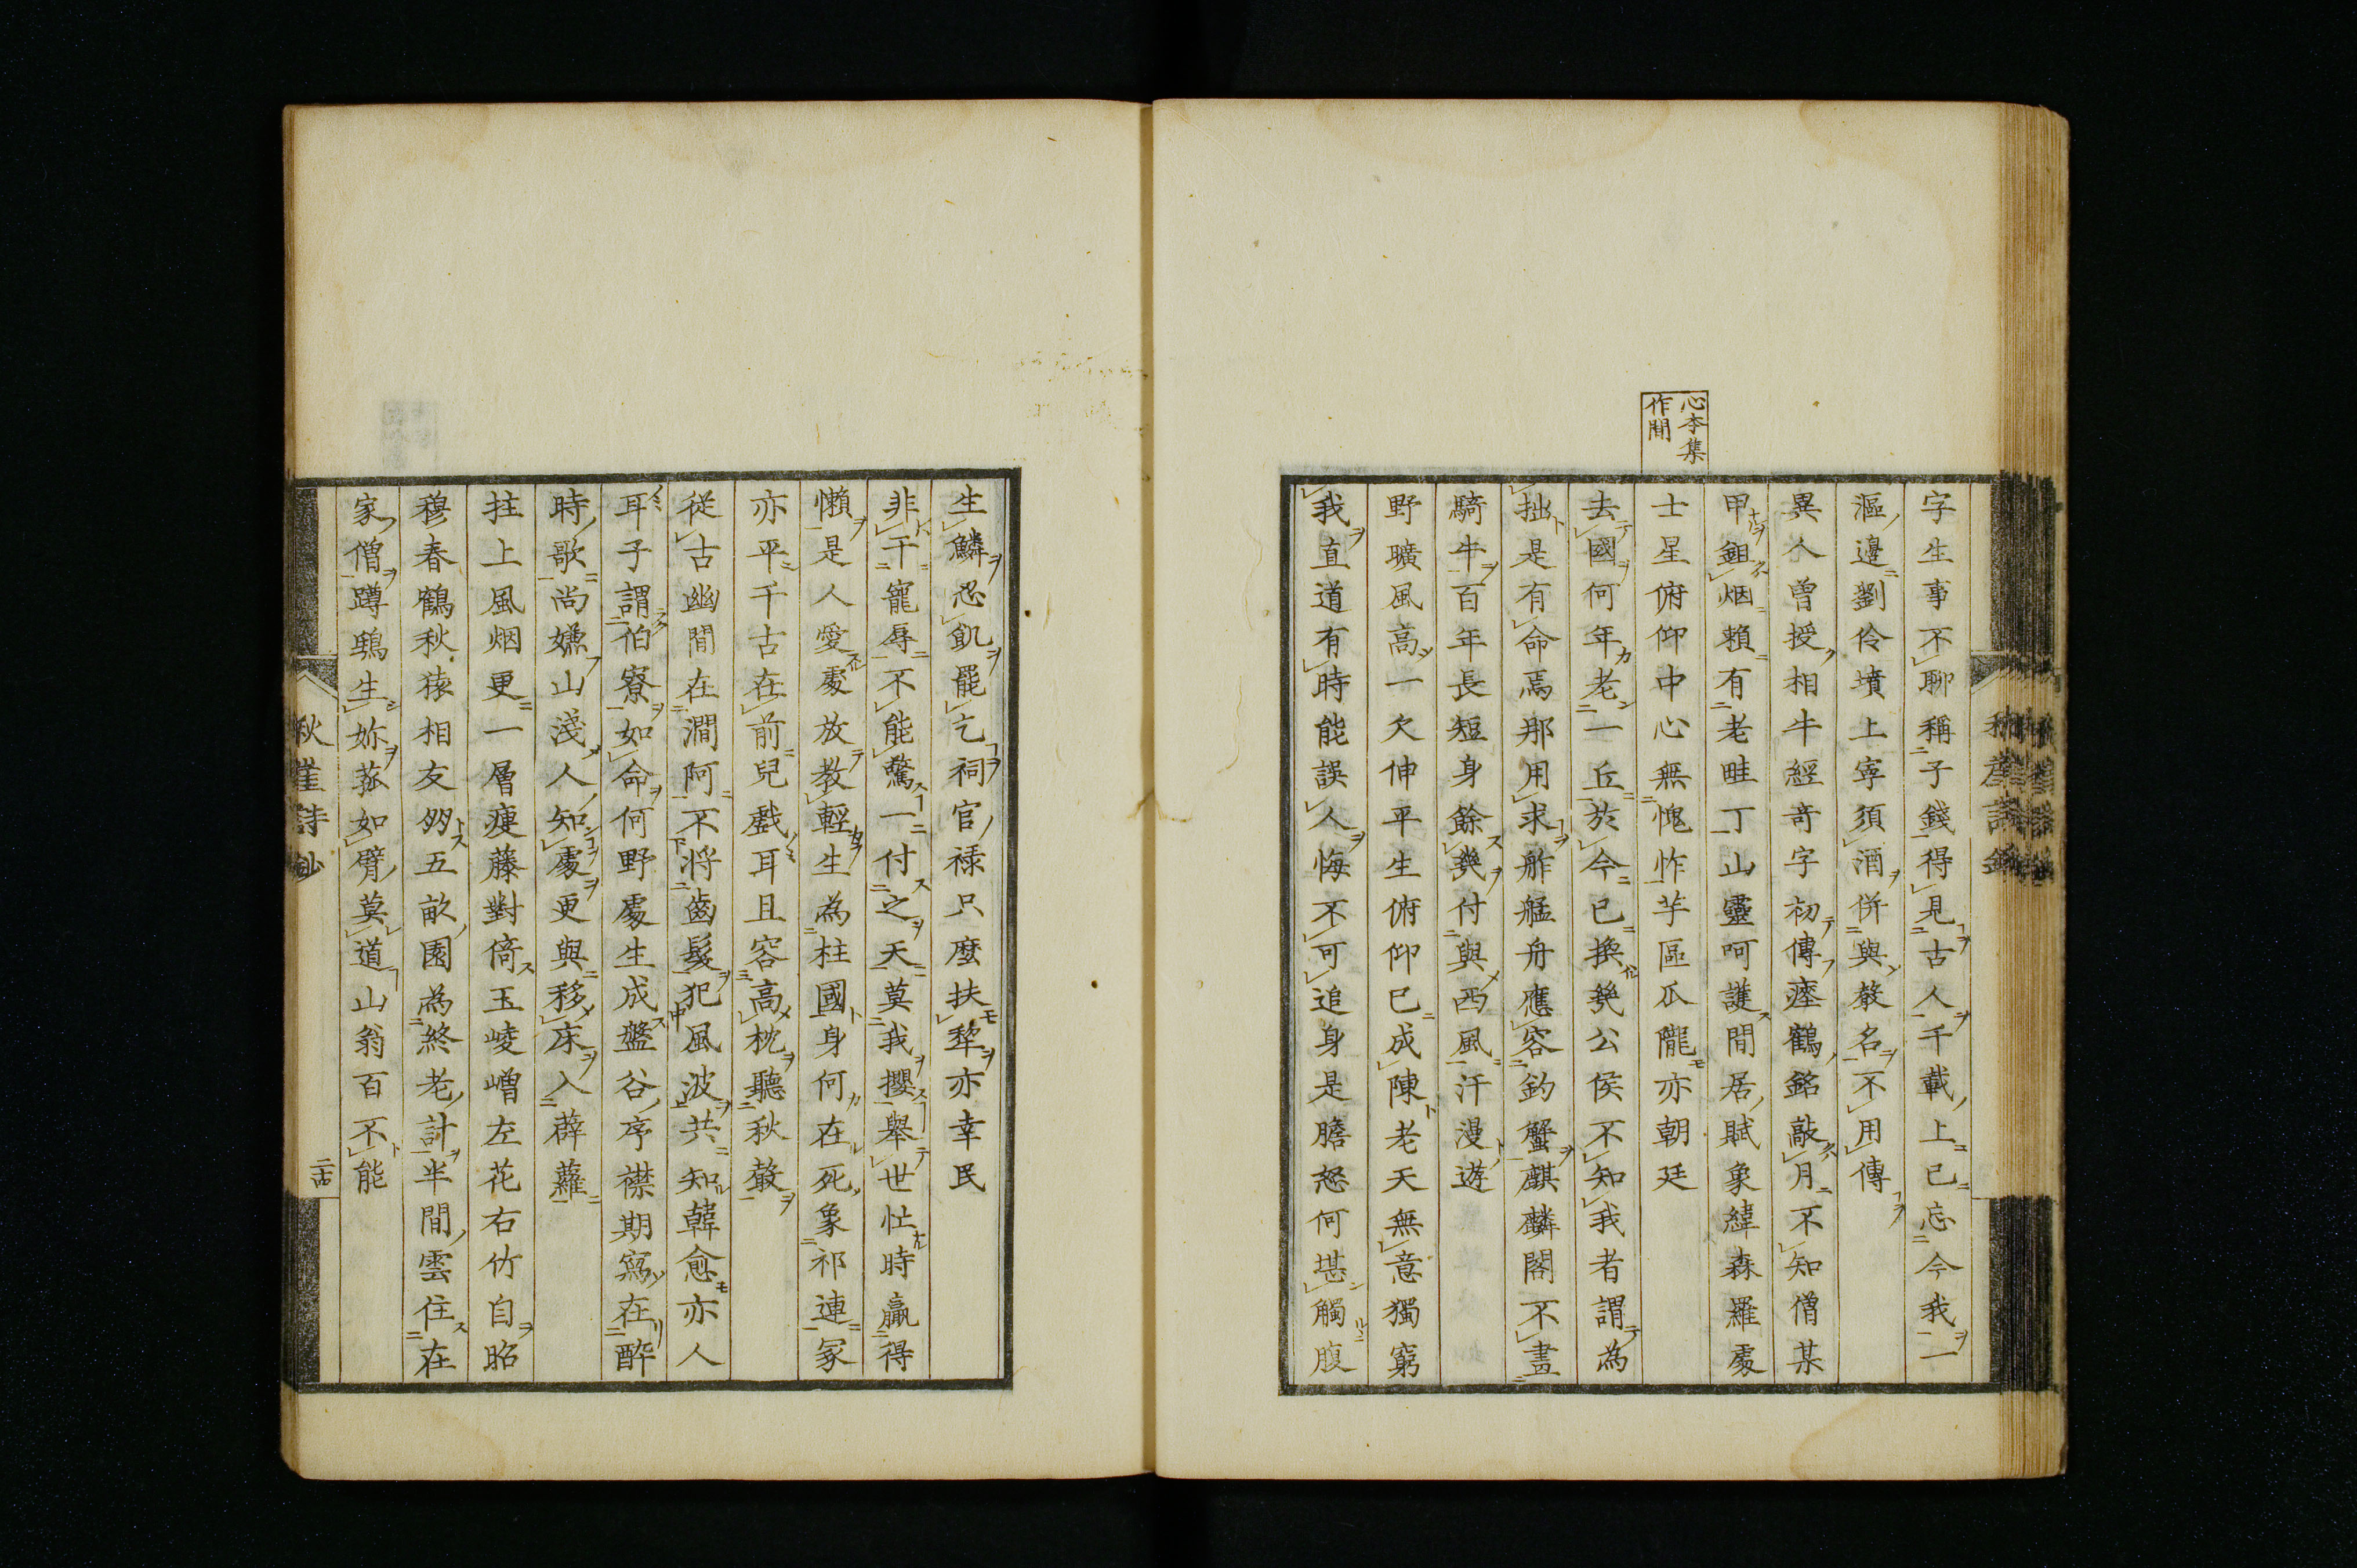 心本集
作聞
字生事不聊稱子錢得見古人千載上已忘今我一
漚邊劉伶墳上寧須酒併與聲名不用傳
異人曾授相牛經奇字初傳瘞鶴銘敲月不知僧某
甲鉏烟賴有老畦丁山靈呵護閒居賦象緯森羅處
士星俯仰中心無愧怍芋區瓜隴亦朝廷
去國何年老一丘於今已換幾公侯不知我者謂為
拙是有命焉那用求舴艋舟應容釣蟹麒麟閣不畫
騎牛百年長短身餘幾付與西風汗漫遊
野曠風高一欠伸平生俯仰已成陳老天無意獨窮
我直道有時能誤人悔不可追身是膽怒何堪觸腹
生鱗忍飢罷乞祠官祿只麼扶犂亦幸民
非干寵辱不能驚一付之天莫我攖舉世忙時贏得
懶是人愛處放教輕生為柱國身何在死象祁連冢
亦平千古在前兒戲耳且容高枕聽秋聲
従古幽閒在澗阿不将齒髮犯風波共知韓愈亦人
耳子謂伯寮如命何野處生成盤谷序襟期寫在醉
時歌尚嫌山淺人知處更與移床入薜蘿
拄上風烟更一層瘦藤對倚玉崚嶒左花右竹自昭
穆春鶴秋猿相友朋五畝園為終老計半間雲住在
家僧蹲鴟生妳菰如臂莫道山翁百不能
秋崖詩鈔
二古